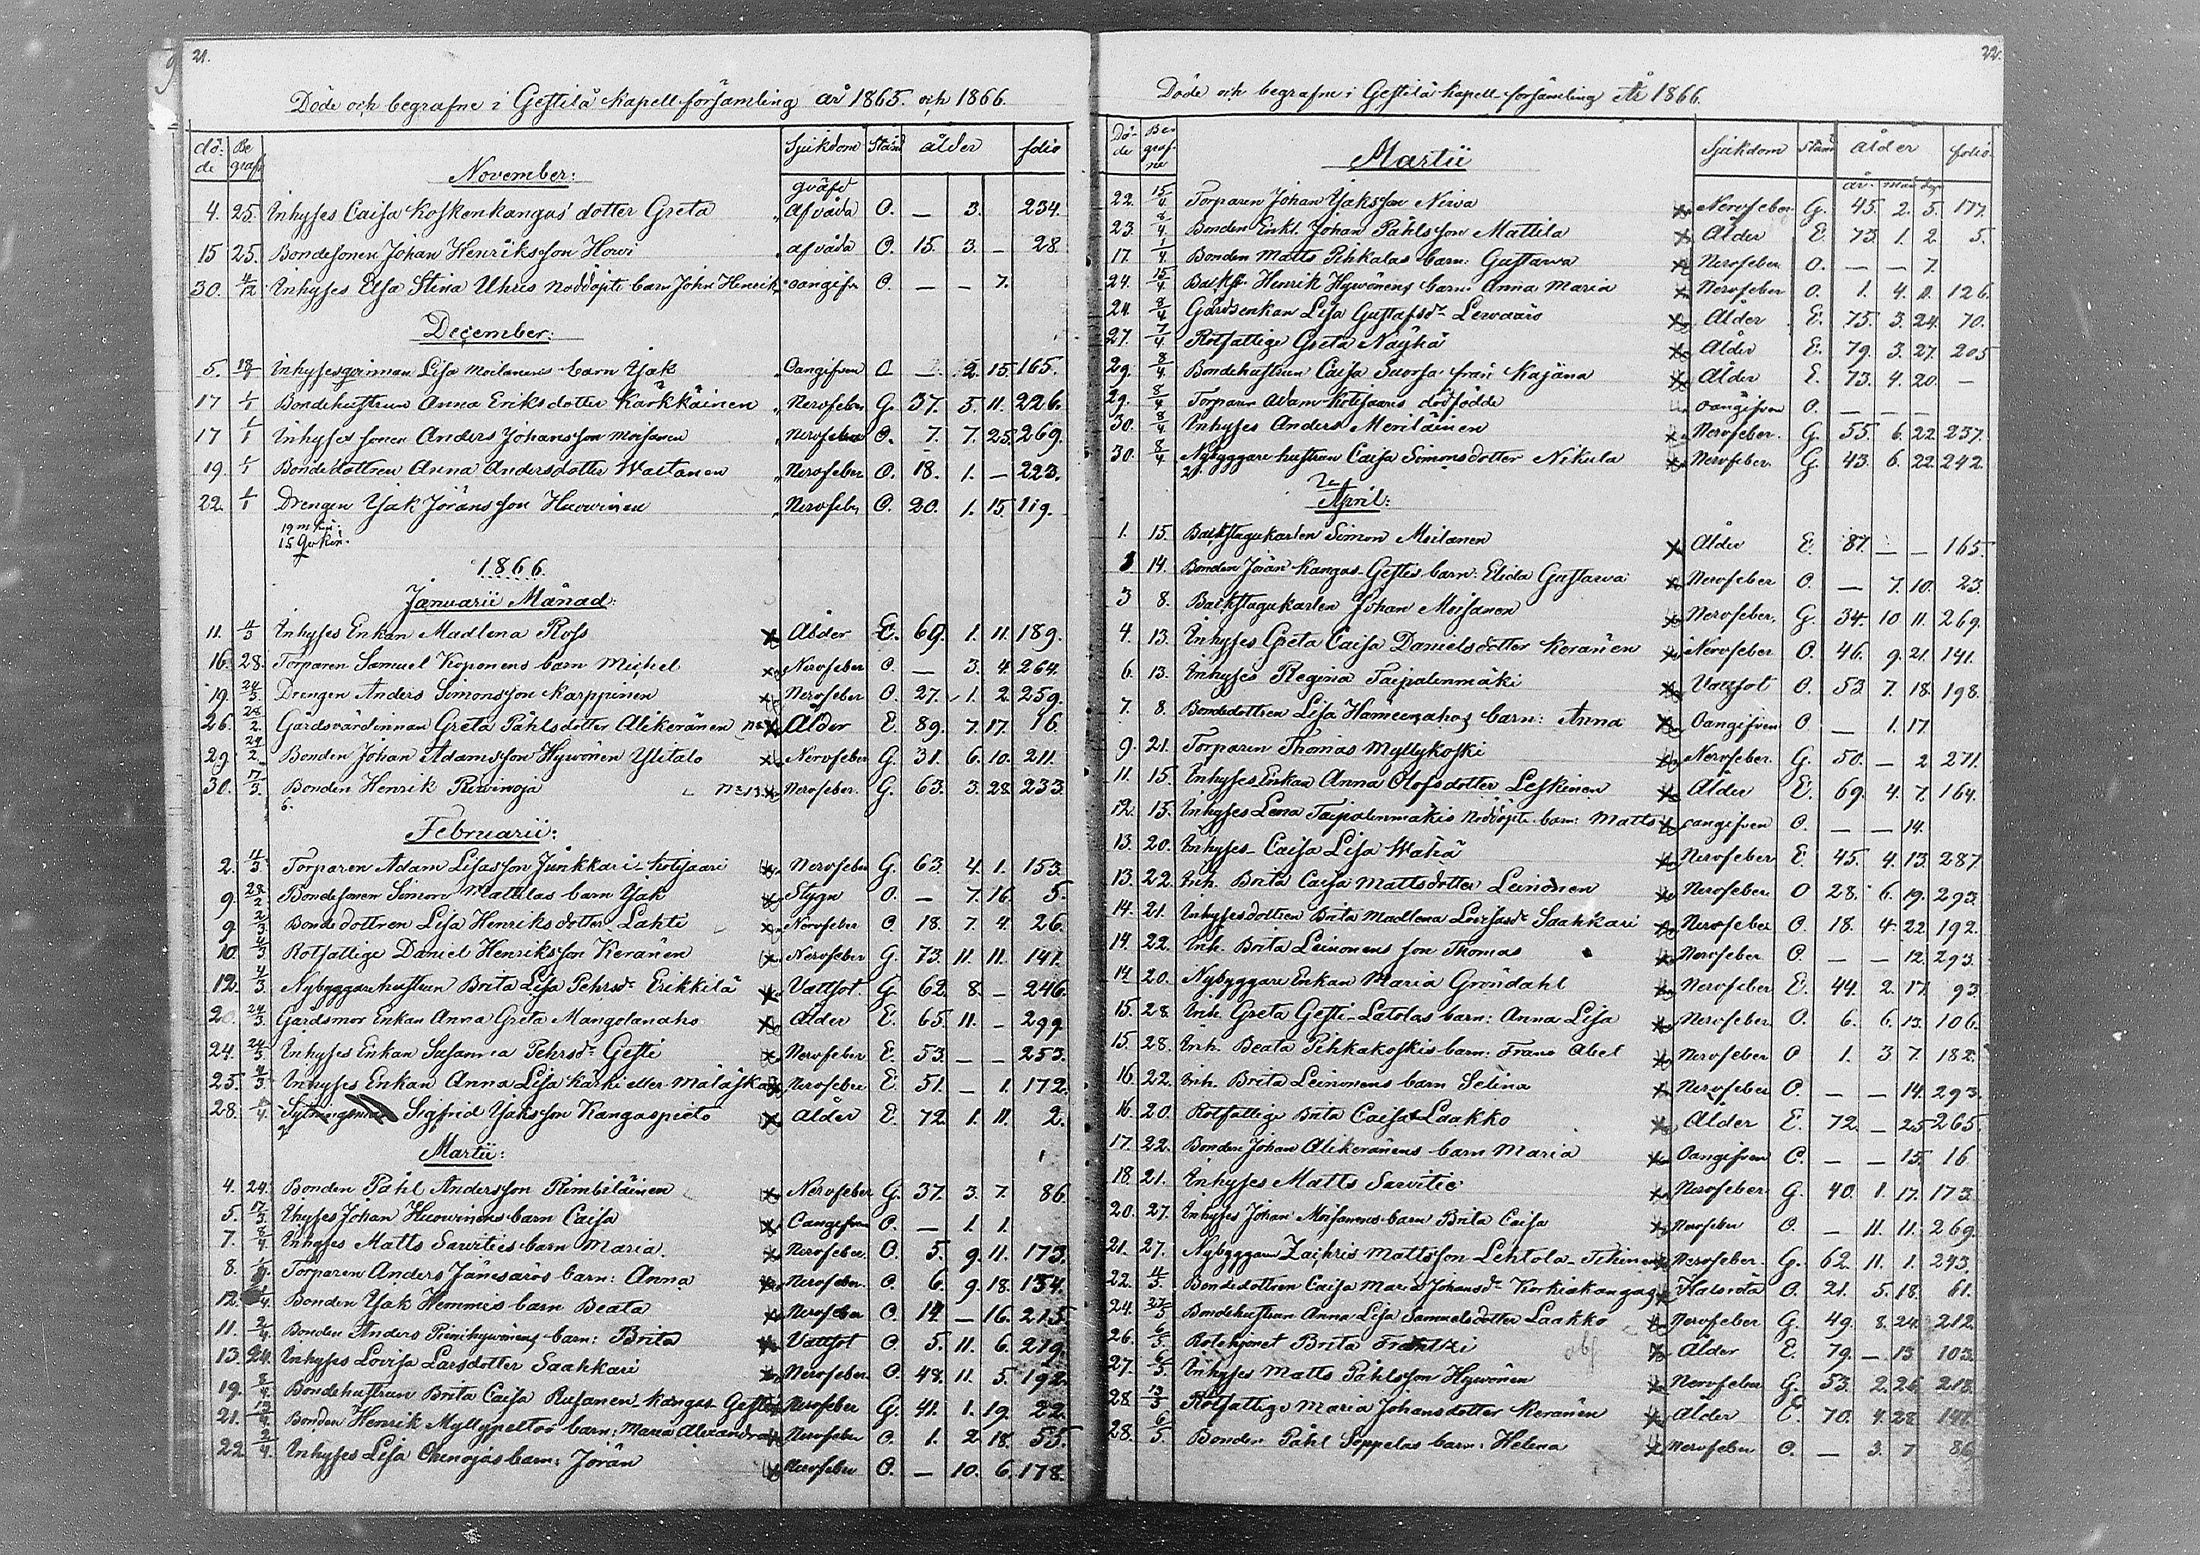 21.
Döde och begrafne i Gestilä Kapellförsamling år 1865. och 1866.
dö-de Be graf. Sjukdom Stånd ålder folio
November:
4. 25. Inhyses Caisa Koskenkangas' dotter Greta qväfd af våda O. — 3. 234.
15 25. Bondesonen Johan Henriksson Howi af våda O. 15. 3. — 28.
30. 4/12 Inhyses Elsa Stina Uhris nöddöpte barn John Henrik oangifn O. — — 7.
December:
5. 18/1 Inhysesqvinnan Lisa Moilanens barn Isak Oangifven O — 2. 15. 165.
17 1/1 Bondehustrun Anna Eriksdotter Karkkäinen Nervfeber G. 37. 5. 11. 226.
17 1/1 Inhyses sonen Anders Johansson Moisanen Nervfeber O. 7. 7. 25. 269.
19. 1/1 Bondedottren Anna Andersdotter Waltanen Nervfeber O. 18. 1. — 223.
22. 1/1 Drengen Isak Jöransson Huowinen Nervfeb. O. 20. 1. 15. 119.
19 m kön.
15 Qv. kön.
1866.
Januarii Månad:
11. 4/3 Inhyses Enkan Madlena Ross Ålder E. 69. 1. 11. 189.
16. 28. Torparen Samuel Koponens barn Michel Nervfeber O. — 3. 4. 264.
19. 24/3 Drengen Anders Simonsson Karppinen Nervfeber O. 27. 1. 2. 259.
26. 28/2 Gårdsvärdinnan Greta Påhlsdotter Alikeränen Ålder E. 89. 7. 17. 16.
29. 24/2 Bonden Johan Adamsson Hywönen Ylitalo Nervfeber G. 31. 6. 10. 211.
30. 17/3 Bonden Henrik Riwinoja Nervfeber. G. 63. 3. 28. 233.
6.
Februarii:
2. 4/3 Torparen Adam Lisasson Junkkari-Kotijaari Nervfeber G. 63. 4. 1. 153.
9. 28/2 Bondesonen Simon Mattilas barn Isak Stygn O. — 7. 16. 5.
9. 2/3 Bondedottren Lisa Henriksdotter Lahti Nervfeber O. 18. 7. 4. 26.
10. 4/3 Rotfattige Daniel Henriksson Keränen Nervfeber G. 73. 11. 11. 141.
12. 4/3 Nybyggarehustrun Brita Lisa Pehrsdr Erikkilä Vattsot. G. 62. 8. — 246.
20. 24/3 Gårdsmor Enkan Anna Greta Mangolanaho Ålder E. 65. 11. — 299.
24. 24/3 Inhyses Enkan Susanna Pehrsdr Gesti Nervfeber E. 53. — — 253.
25. 4/3 Inhyses Enkan Anna Lisa Karki eller Mäläska Nervfeber E. 51. — 1. 172.
28. 1/4 Sigfrid Isaksson Kangaspieto Ålder E. 72. 1. 11. 2.
Martii:
4. 24. Bonden Påhl Andersson Rimbiläinen Nervfeber G. 37. 3. 7. 86.
5. 17/3 Inhyses Johan Huowinens barn Caisa Oangifven O. — 1. 1.
7. 8/4 Inhyses Matts Sarvities barn Maria. Nervfeber. O. 5. 9. 11. 173.
8. Torparen Anders Jänesaros barn: Anna Nervfeber. O. 6. 9. 18. 134.
12. 1/4 Bonden Isak Hemmis barn Beata Nervfeber O. 14. — 16. 215.
11. 2/4 Bonden Anders Pienihywönens barn: Brita Vattsot O. 5. 11. 6. 219.
13. 24. Inhyses Lovisa Larsdotter Saahkari Nervfeber. O. 48. 11. 5. 192.
19. 8/4 Bondehustrun Brita Caisa Rusanen Kangas-Gesti Nervfeber G. 41. 1. 19. 22.
21. Bonden Henrik Myllypeltos barn: Maria Alexandra Nervfeber O. 1. 2. 18. 55.
22. 2/4 Inhyses Lisa Ohenojas barn: Jöran Nervfeber O. — 10. 6. 178.
22.
Döde och begrafne i Gestilä Kapell-församling År 1866.
Dö-de Be-graf-ne Martii Sjukdom Stånd ålder folio.
år. mån. dag.
22. 15/4 Torparen Johan Isaksson Nirva Nervfeber G. 45. 2. 5. 177.
23. 8/4 Bonden Enkl. Johan Påhlsson Mattila Ålder E. 73. 1. 2. 5.
17. 1/4 Bonden Matts Pihkalas barn: Gustava Nervfeber O. — — 7.
24. 15/4 Backst. Henrik Hywönens barn: Anna Maria Nervfeber O. 1. 4. 11. 126.
24. 8/4 Gårdsenkan Lisa Gustafsdr Lewaars Ålder E. 75. 3. 24. 70.
27. 7/4 Rotfattige Greta Näykä Ålder E. 79. 3. 27. 205
29. 8/4 Bondehustrun Caisa Suorsa från Kajana Ålder E. 73. 4. 20. —
29. 8/4 Torparen Adam Kotijaaris dödfödde oangifven O. — — —
30. 8/4 Inhyses Anders Meriläinen Nervfeber. G. 55. 6. 22. 237.
30. 8/4 Nybyggarehustrun Caisa Simonsdotter Nikula Nervfeber. G. 43. 6. 22. 242.
April:
1. 15. Backstugukarlen Simon Moilanen Ålder E. 87. — — 165.
3 14. Bonden Jöran Kangas-Gestis barn: Elida Gustava Nervfeber O. — 7. 10. 23.
3 8. Backstugukarlen Johan Moisanen Nervfeber. G. 34. 10 11. 269.
4. 13. Inhyses Greta Caisa Danielsdotter Keränen Nervfeber O. 46. 9. 21. 141.
6. 13. Inhyses Regina Taipalenmäki Vattsot O. 53. 7. 18. 198.
7. 8. Bondedottren Lisa Hämeenahos barn: Anna Oangifven O — 1. 17.
9. 21. Torparen Thomas Myllykoski Nervfeber. G. 50. — 2 271.
11. 15. Inhyses Enkan Anna Olofsdotter Leskinen Ålder E. 69. 4. 7. 164.
12. 15. Inhyses Lena Taipalenmäkis Nöddöpte barn: Matts oangifven O. — — 14.
13. 20. Inhyses Caisa Lisa Wähä Nervfeber E. 45. 4. 13. 287
13. 22. Inh. Brita Caisa Mattsdotter Leinonen Nervfeber. O 28. 6. 19. 293.
14. 21. Inhysesdottren Brita Madlena Lovisasdr Saahkari Nervfeber O. 18. 4 22. 192.
14. 22. Inh. Brita Leinonens son Thomas Nervfeber O. — — 12. 293.
14 20. Nybyggare Enkan Maria Gröndahl Nervfeber E. 44. 2. 17. 93.
15. 28. Inh. Greta Gesti-Latolas barn: Anna Lisa Nervfeber. O. 6. 6. 13. 106.
15. 28. Inh. Beata Pihkakoskis barn: Frans Abel Nervfeber O 1. 3 7. 182.
16. 22. Inh. Brita Leinonens barn Selina Nervfeber O. — — 14. 293.
16. 20. Rotfattige Brita Caisa Laakko Ålder E. 72. — 25. 265.
17. 22. Bonden Johan Alikeränens barn Maria Oangifven O. — — 15. 16.
18. 21. Inhyses Matts Sarvitie Nervfeber. G. 40. 1. 17. 173.
20. 27. Inhyses Johan Moisanens barn Brita Caisa Nervfeber O. — 11. 11. 269.
21. 27. Nybyggaren Zachris Mattsson Lehtola-Tihinen Nervfeber. G. 62. 11. 1. 243.
22. 4/5 Bondedottren Caisa Maria Johansdr Korkiakangas Halsröta O. 21. 5. 18. 61.
24. Bondehustrun Anna Lisa Samuelsdotter Laakko Nervfeber G. 49. 8. 24. 212.
26. 6/5 Rotehjonet Brita Frantzi Ålder E. 79. — 13. 103.
27. 6/5 Inhyses Matts Påhlsson Hywönen Nervfeber G. 53. 2. 26. 218.
28. 13/5 Rotfattige Maria Johansdotter Keränen Ålder E. 70. 4. 28. 141.
28. 6/5 Bonden Påhl Seppelas barn: Helena Nervfeber O. — 3. 7 86.